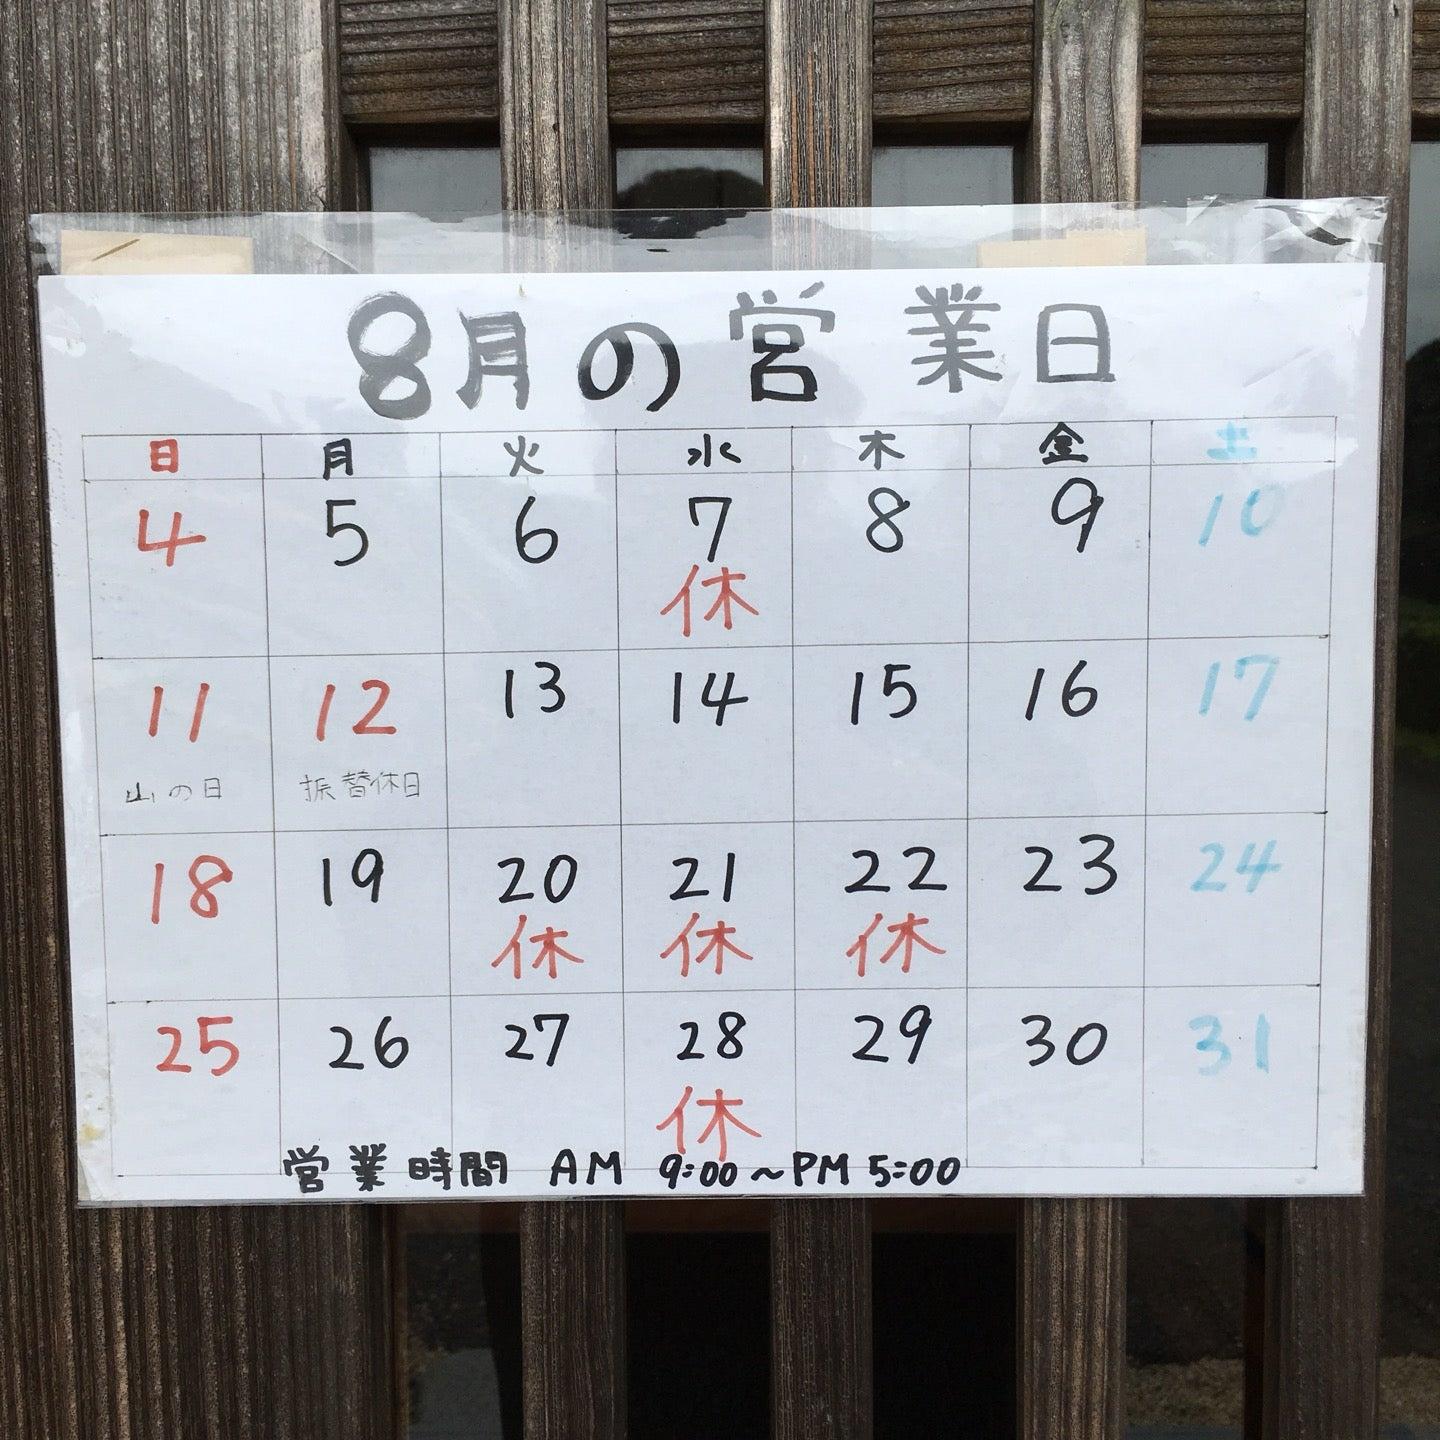 8月の営業日
日 月 火 水 木 金 土
4 5 6 7 8 9 10
休
11 12 13 14 15 16 17
山の日 振替休日
18 19 20 21 22 23 24
休 休 休
25 26 27 28 29 30 31
休
営業時間 AM 9:00〜PM 5:00